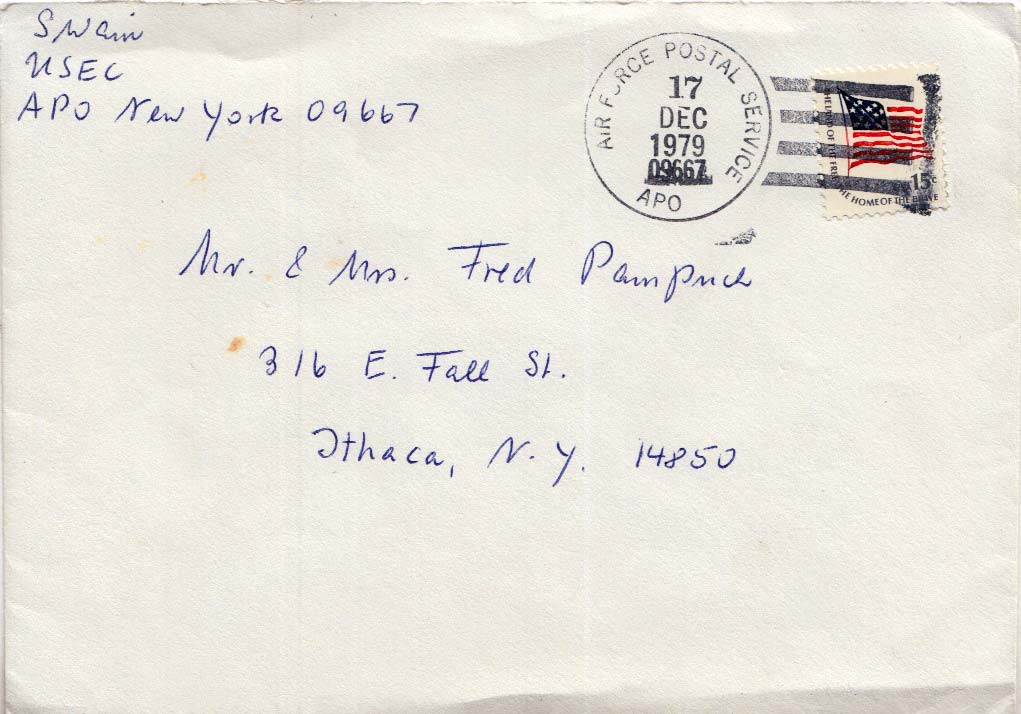 Swain
USEC
APO New York 09667
AIR FORCE POSTAL SERVICE
17
DEC
1979
09667
APO
THE LAND OF THE FREE
THE HOME OF THE BRAVE
15c
Mr. & Mrs. Fred Pampuch
316 E. Fall St.
Ithaca, N.Y. 14850